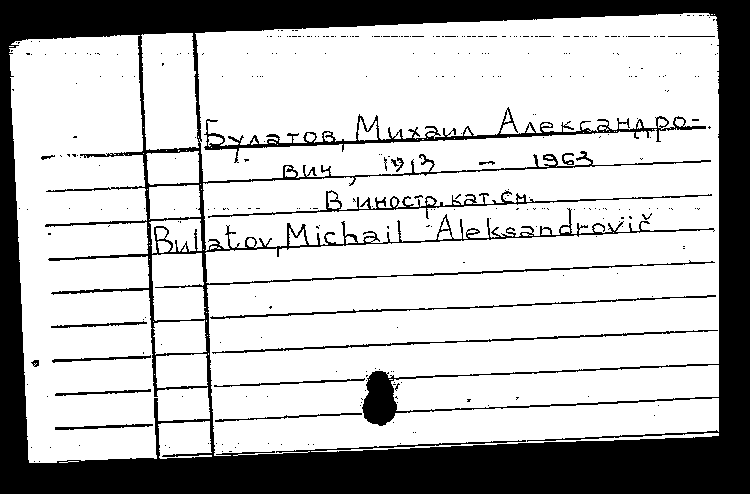 Булатов, Михаил Александро-
вич, 1913 - 1963
В иностр. кат. см.
Bulatov, Michail Aleksandrovič